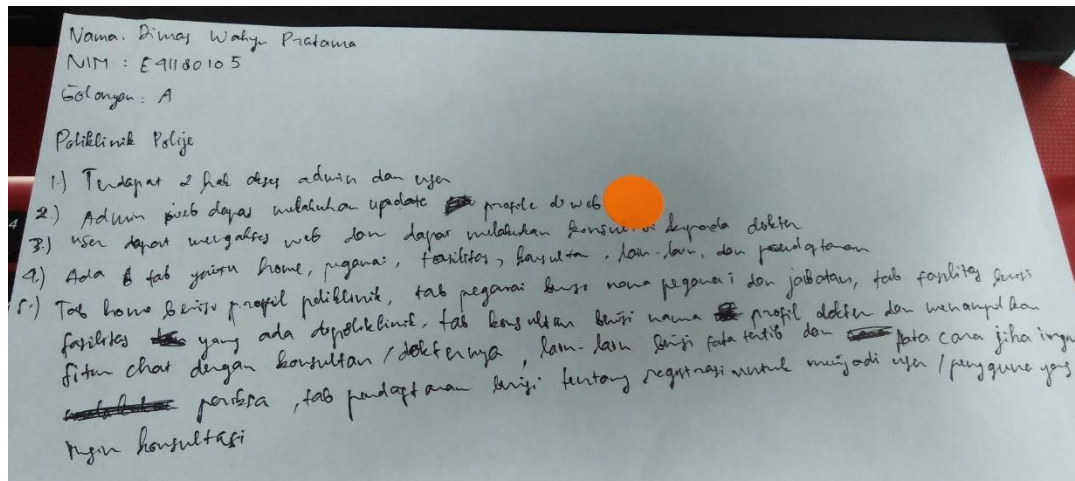 Nama. Dimas Wahyu Pratama
NIM : E41180105
Golongan : A
Poliklinik Polije
1.) Terdapat 2 hak akses admin dan user
2.) Admin web dapat melakukan update profile di web
3.) user dapat mengakses web dan dapat melakukan kepada dokter
4.) Ada 6 tab yaitu home, pegawai, fasilitas, konsultan, lain-lain, dan pendaftaran
5.) Tab home berisi profil poliklinik, tab pegawai berisi nama pegawai dan jabatan, tab fasilitas berisi
fasilitas yang ada dipoliklinik, tab konsultan berisi nama profil dokter dan menampilkan
fitur chat dengan konsultan / dokternya, lain-lain berisi tata tertib dan tata cara jika ingin
periksa, tab pendaftaran berisi tentang registrasi untuk menjadi user / pengguna yang
ingin konsultasi